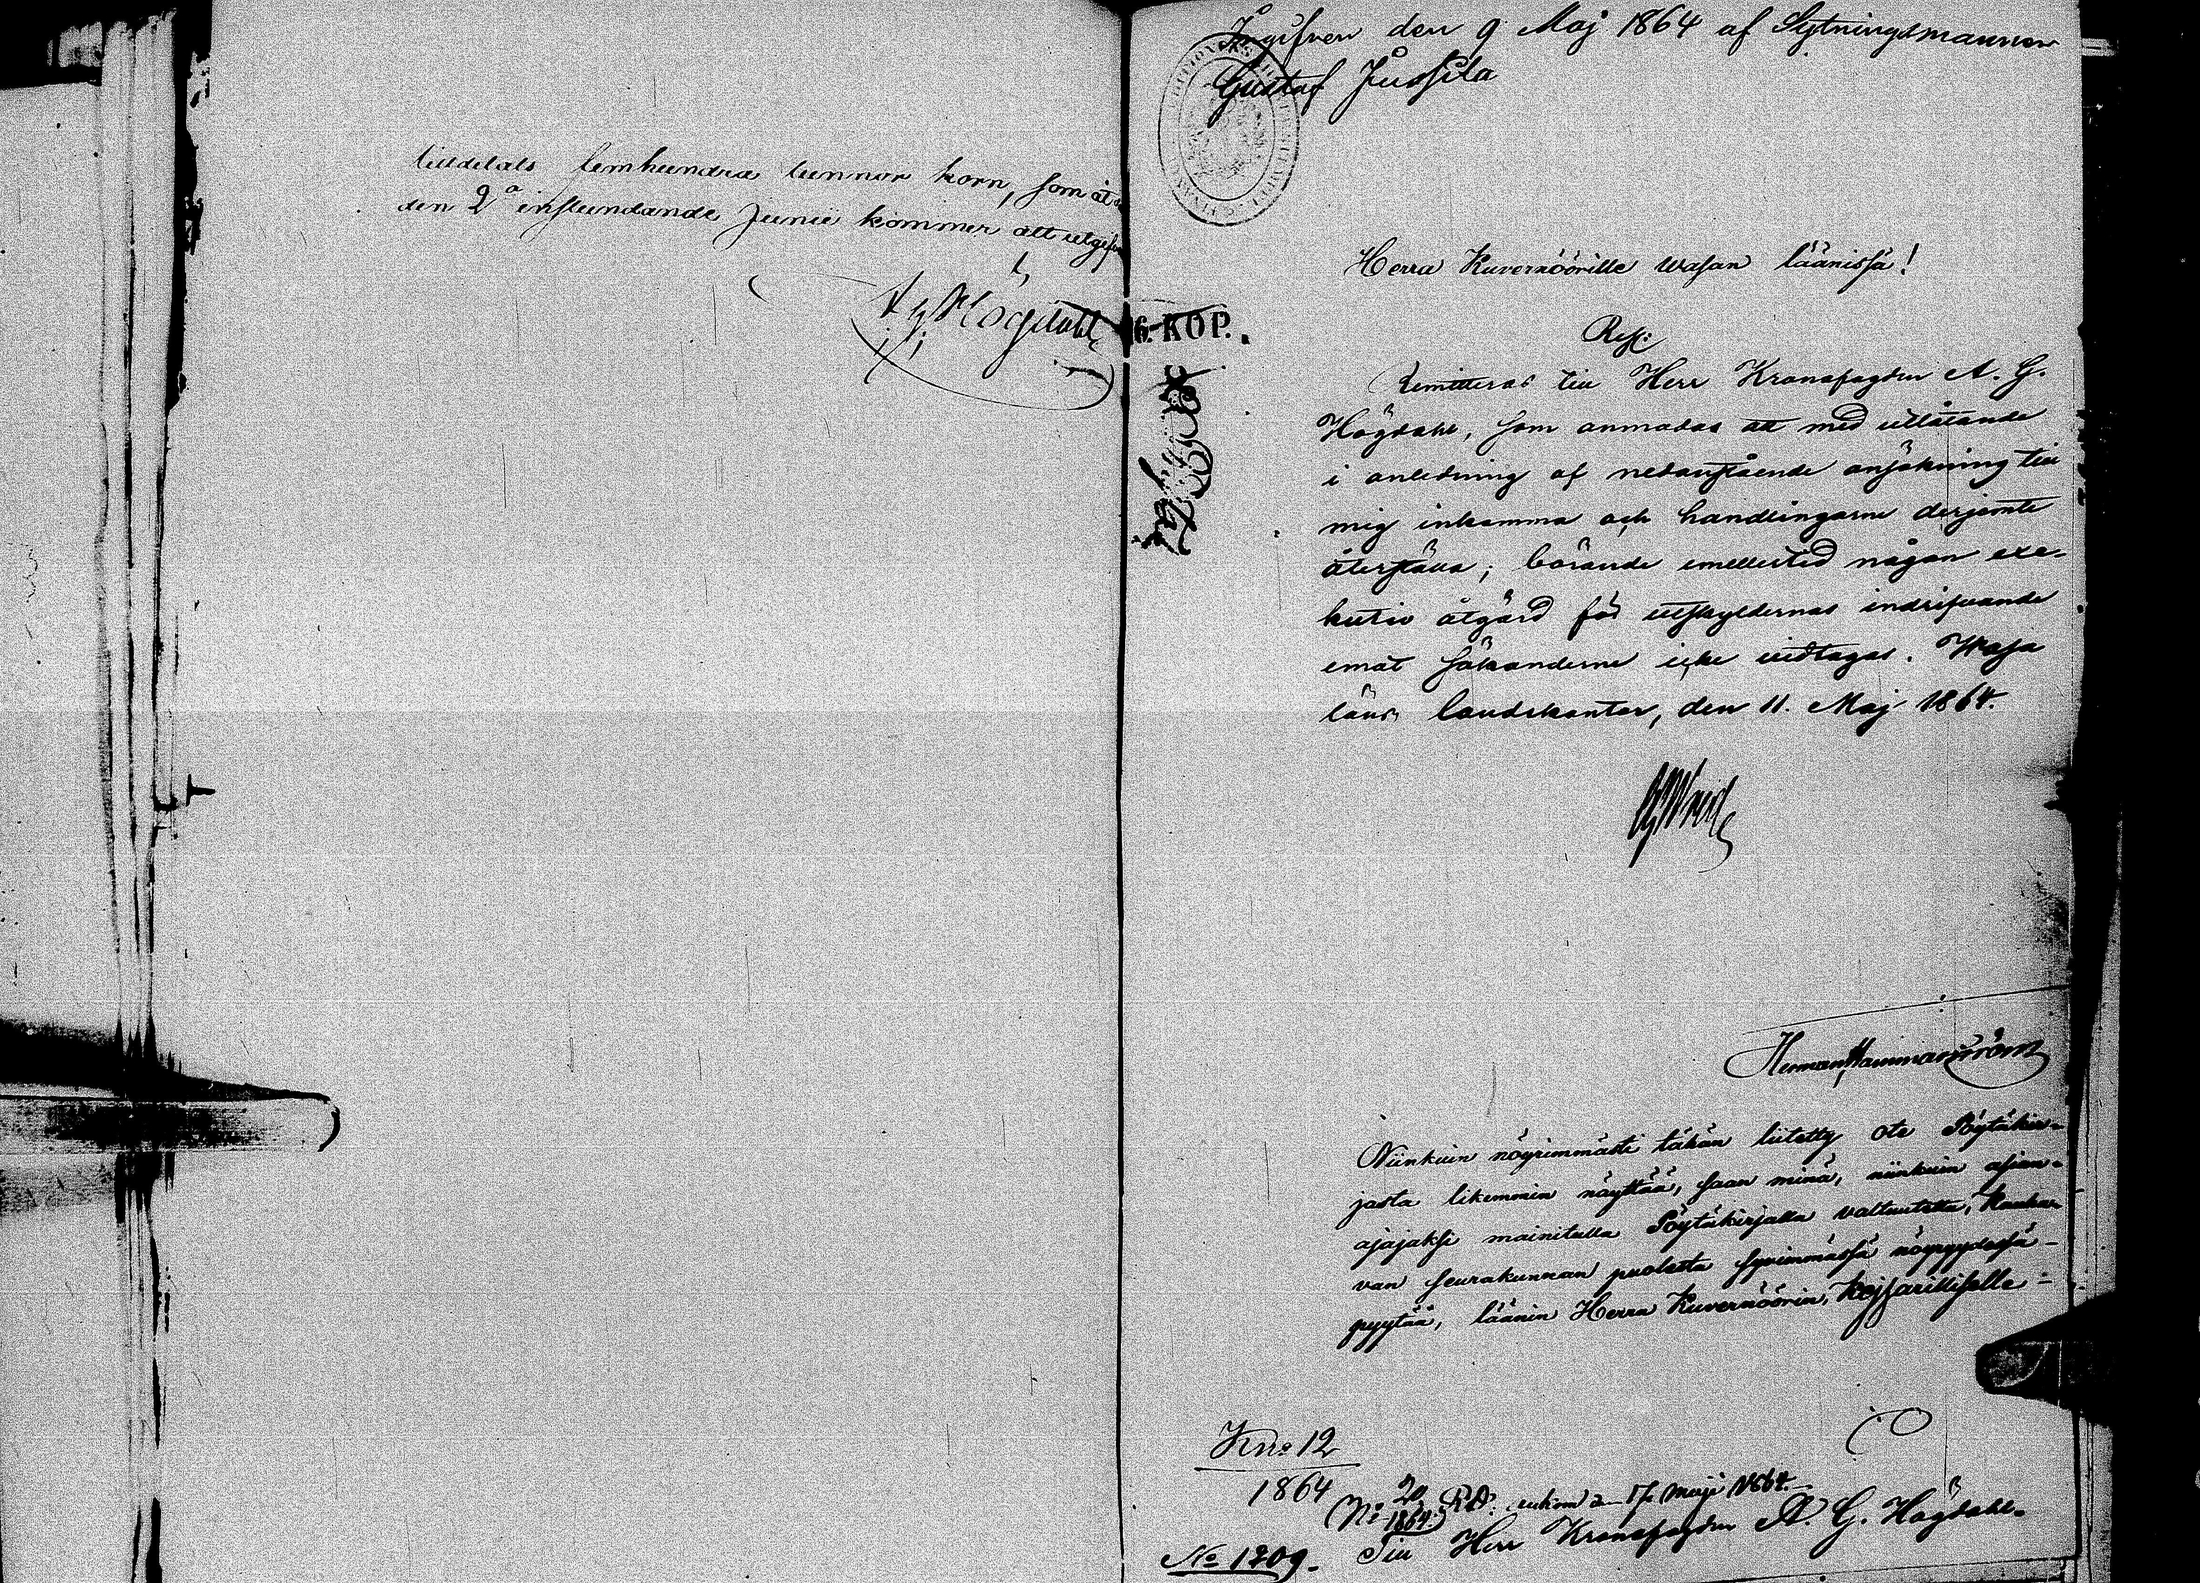 tilldelats femhundra tunnor korn, som åt
den 2a instundande Junii kommer att utgifv
A G Högdahl
Ingifven den 9 Maj 1864 af Sytningsmannen
Gustaf Jussila
Herra Kuvernöörille Wasan läänissä!
6. KOP.
Res:
Remitteras till Herr Kronofogden A. G.
Högdahl, som anmodas att med utlåtande
i anledning af nedanstående ansökning till
mig inkomma och handlingarne derjemte
återställa; börande emellertid någon exe-
kutiv åtgärd för utskyldernas indrifvande
emot sökanderne icke vidtagas. Wasa
läns landskontor, den 11. Maj 1864.
Herman Hammarström
Niinkuin nöyrimmästi tähän liitetty ote Pöytäkir-
jasta likemmin näyttää, saan minä, niinkuin asian-
ajajaksi mainitulla Pöytäkirjalla valtuutettu, Kauha-
van seurakunnan puolesta syvimmässä nöyryydessä
pyytää, läänin Herra Kuvernöörin, Keisarilliselle
Kno 12
1864
No 20 1864. R.D. inkom den 17 Maji 1864.
Till Herr Kronofogden A. G. Högdahl.
No 1209.